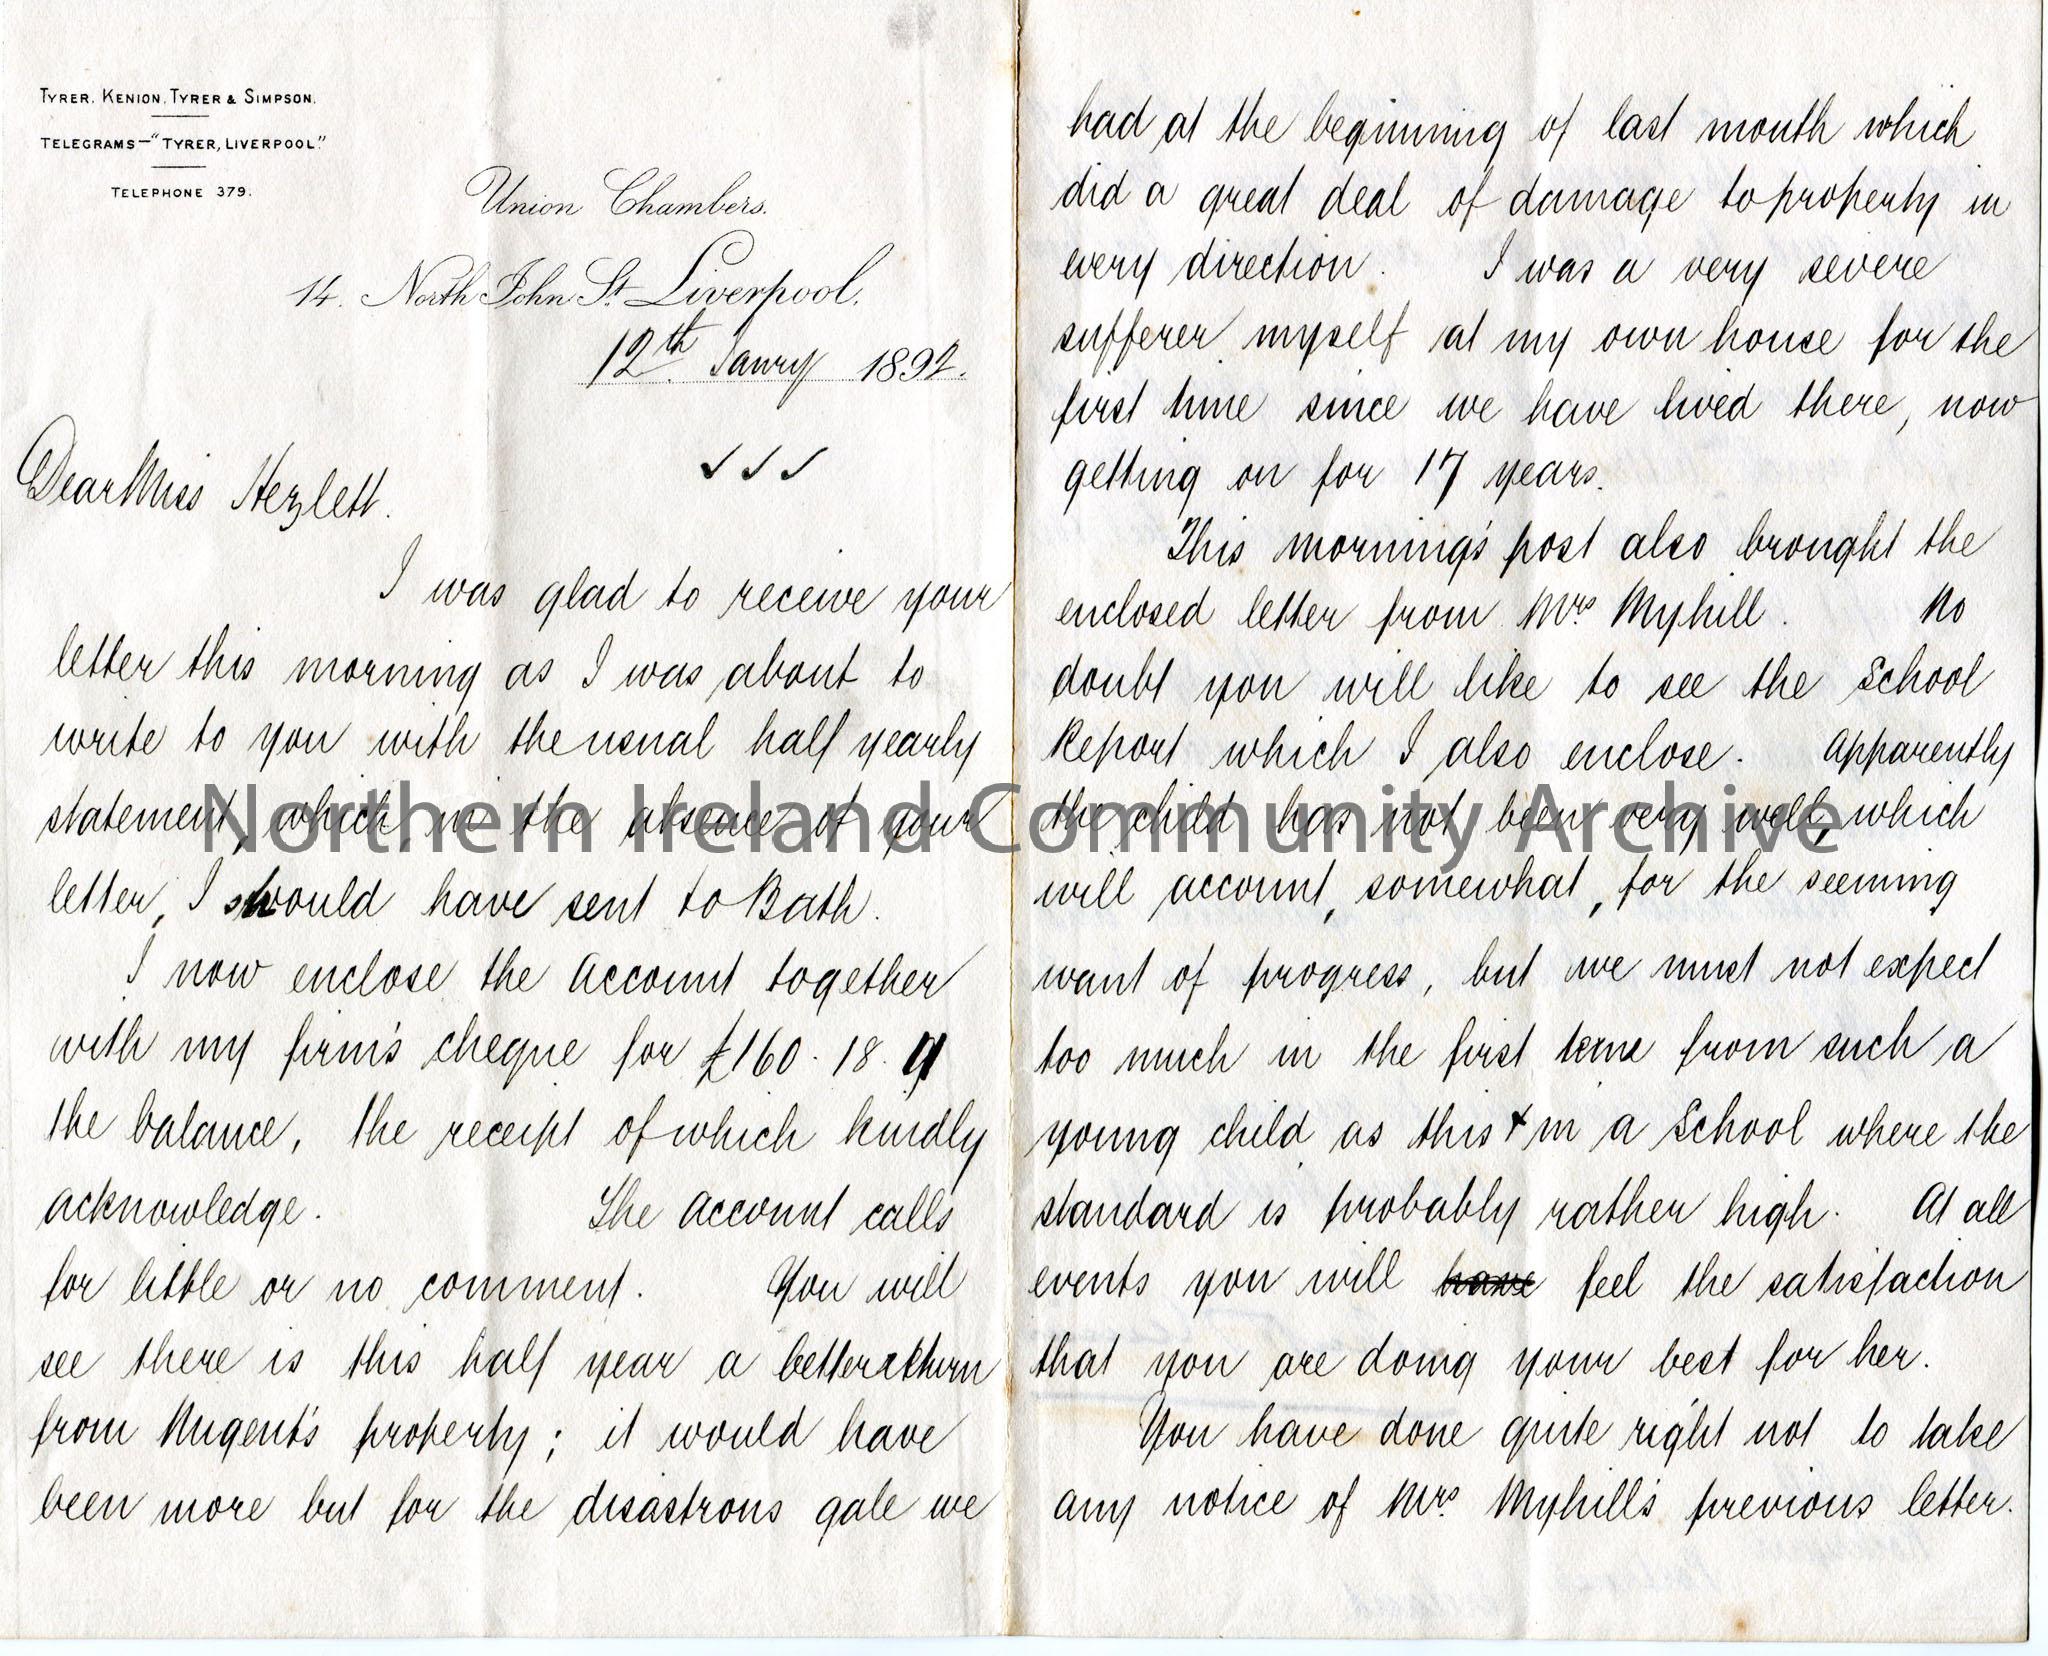 TYRER, KENION, TYRER & SIMPSON.
TELEGRAMS—"TYRER, LIVERPOOL."
TELEPHONE 379.
Union Chambers.
14. North John St. Liverpool.
12th Janry 1892.
Dear Miss Hezlett.
I was glad to receive your
letter this morning as I was about to
write to you with the usual half yearly
statement, which in the absence of your
letter, I should have sent to Bath.
I now enclose the Account together
with my firm's cheque for £160. 18. 9
the balance, the receipt of which kindly
acknowledge. The Account calls
for little or no comment. You will
see there is this half year a better return
from Nugent's property; it would have
been more but for the disastrous gale we
had at the beginning of last month which
did a great deal of damage to property in
every direction. I was a very severe
sufferer myself at my own house for the
first time since we have lived there, now
getting on for 17 years.
This morning's post also brought the
enclosed letter from Mrs. Myhill. No
doubt you will like to see the School
Report which I also enclose. Apparently
the child has not been very well, which
will account, somewhat, for the seeming
want of progress, but we must not expect
too much in the first term from such a
young child as this & in a School where the
standard is probably rather high. At all
events you will have feel the satisfaction
that you are doing your best for her.
You have done quite right not to take
any notice of Mrs. Myhill's previous letter.
Northern Ireland Community Archive